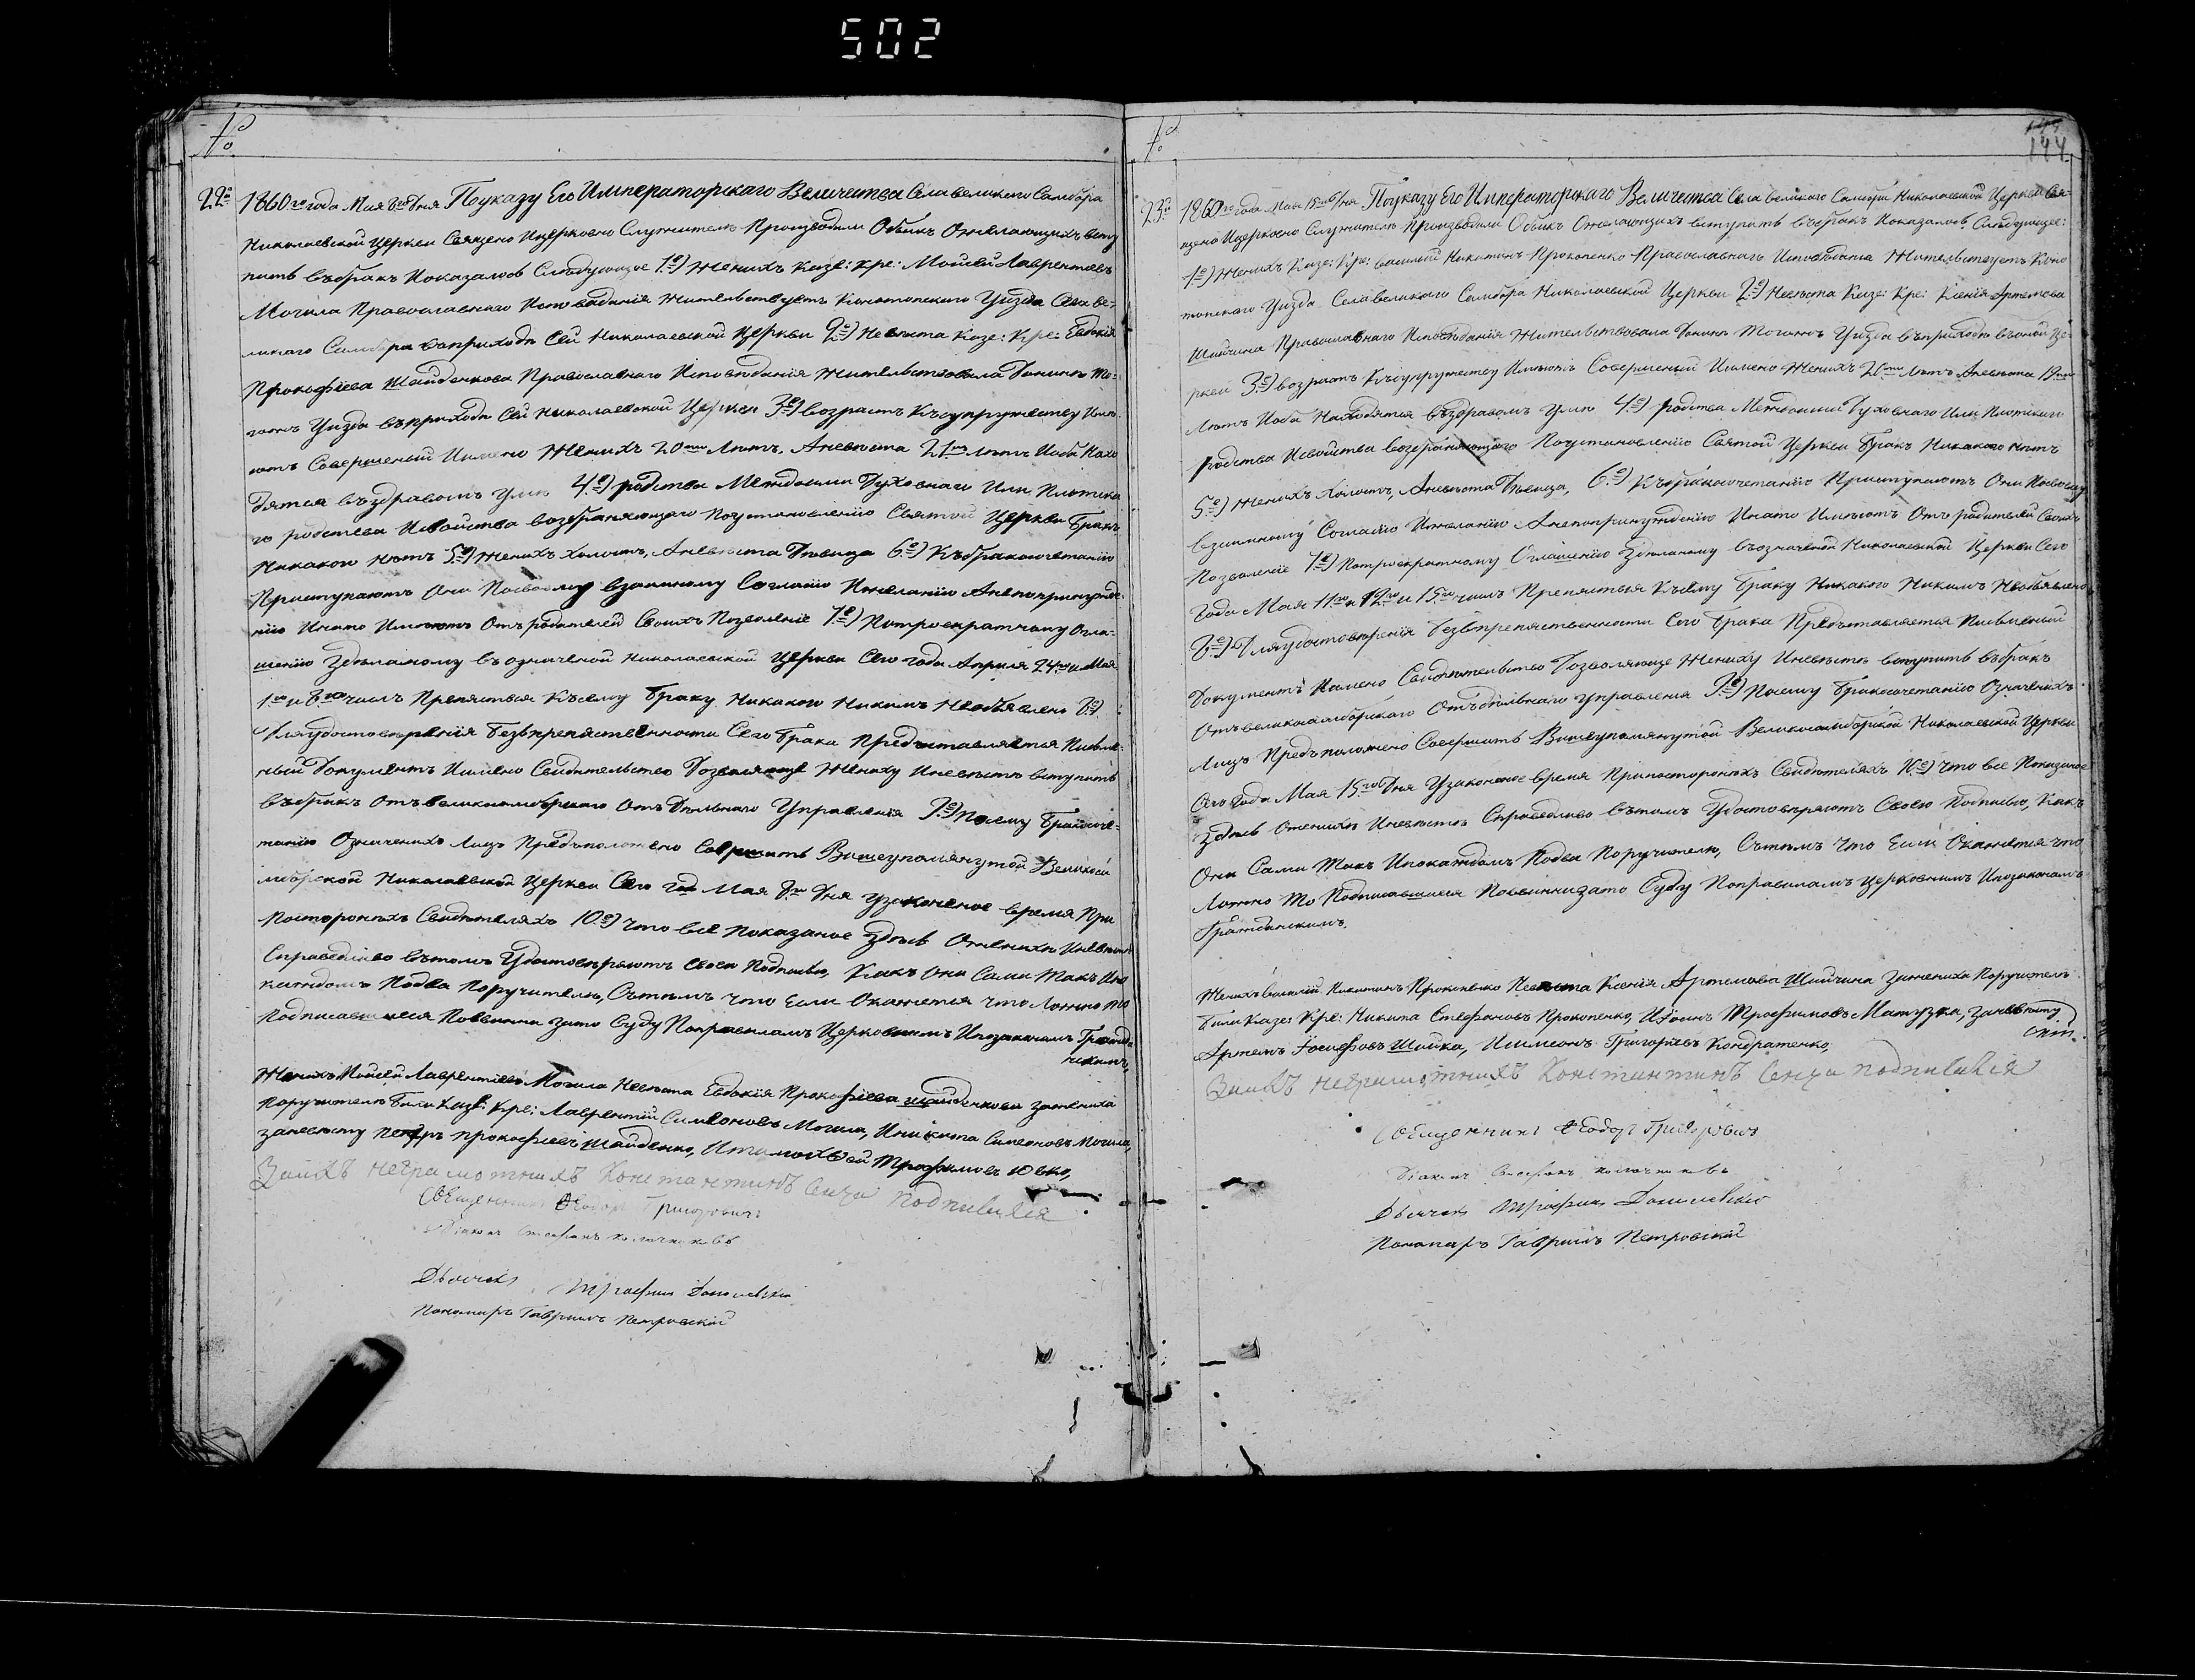 502
№
22й 1860го года Мая 8го дня По указу Его Императорскаго Величества Села великого Самбора
Николаевской Церкви Священо Ицерковно Служители Производили Обыск Ожелающихъ всту
пить въбракъ Иоказалось Следующее 1е) Женихъ Казе: кре: Моисей Лаврентиевъ
Могила Православнаго Исповедания Жительствуетъ Конотопского Уизда Села ве-
ликаго Самбора въприходе Сей Николаевской Церкви 2е) Невеста Казе: Кре: Евдокия
Прокофиева Шайденкова Православнаго Исповедания Жительствовала Доныне То-
гожъ Уизда въприходе Сей Николаевской Церкви 3е) возрастъ Къ супружеству Име-
ютъ Совершеный Имено Женихъ 20ти летъ, Аневеста 21го летъ Иоба Нахо
дятся въздравомъ уме 4е) родства Междоими Духовнаго Или Плотска
го родства Исвойства возбраняющаго Поустановлению Святой Церкви бракъ
Никакого нетъ 5е) Женихъ холостъ, Аневеста Девица 6е) Къбракосочетанию
Приступаютъ Они Посвоему взаимному Согласию Ижеланию Анепопринужде-
нию Инато Имеютъ Отъ родителей Своихъ Позволение 7е) Потроекратному Огла-
шению Зделаному въозначеной Николаевской Церкви Сего года Апреля 24го и Мая
1го и 8го числъ Препятствия Къ сему браку Никакого Никимъ Необъявлено 8е)
Для удостоверения Безъпрепятственности Сего брака Предъставляется Писме-
ный Документъ Имено Свидетельство Дозволяюще Жениху Иневесте вступить
въбракъ Отъ великосамборскаго Отъдельнаго Управления 9е) Посему бракосоче-
танию Означенихъ Лицъ Предъположено Совершить Вишеупомянутой Великоса
мборской Николаевской Церкви Сего год Мая 8го дня узаконеное время При
Посторонихъ Свидетеляхъ 10е) Что все показаное Здесь Оженихе Иневесте
Справедливо въ томъ Удостоверяютъ Своею Подписью, Какъ Они Сами Такъ Ипо
каждомъ Подва Поручители, Сътемъ что Если Окажется что Ложно то
Подписавшиеся Повинни зато Суду Поправиламъ Церковнимъ Ипозаконамъ Гражда
нскимъ,
Женихъ Моисей Лаврентиевъ Могила Невеста Евдокия Прокофиева шайденкова зажениха
Поручители били Казе: Кре: Лаврентий Симеоновъ Могила, Иникита Симеоновъ Могила,
заневесту петръ прокофиевъ шайденко, Итимофей Трофимовъ Ювко,
Заихъ неграмотнихъ Константинъ Сенча подписался
Священникъ Феодоръ Григоровичъ
Диаконъ Стефанъ
Дьячекъ Трофим Данилевский
Пономарь Гавриилъ Петровский
№
144
23й 1860го года Мая 15го дня По указу Его Императорскаго Величества Села великого Самбора Николаевской Церкви Свя-
щено Ицерковно Служители Производили Обыскъ Ожелающихъ вступить въбракъ Иоказалось Следующее:
1е) Женихъ Казе: Кре: василий Никитинъ Прокопенко Православнаго Исповедания Жительствуетъ Коно
топскаго Уизда Села великаго Самбора Николаевской Церкви 2е) Невеста Казе: Кре: Ксения Артемова
Шийчина Православнаго Исповедания Жительствовала Донине Тогожъ Уизда въприходе въоной Це-
ркви 3е) возрастъ Къ супружеству Имеютъ Совершеный Имено Женихъ 20ти летъ Аневеста 19ти
летъ Иоба Находятся въздравомъ уме 4е) родства Междоими Духовнаго Или Плотскаго
родства Исвойства возбраняющаго Поустановлению Святой Церкви бракъ Никакого нетъ
5е) Женихъ Холостъ, Аневеста Девица, 6е) Къбракосочетанию Приступаютъ Они Посвоему
взаимному Согласию Ижеланию Анепопринуждению Инато Имеютъ Отъ родителей Своихъ
Позволение 7е) Потроекратному Оглашению Зделаному въозначеной Николаевской Церкви Сего
года Мая 11го и 12го и 15го числъ Препятствия Къ сему браку Никакого Никимъ Необъявлено
8е) Для удостоверения Безъпрепятственности Сего брака Предъставляется Писменый
Документъ Имено Свидетельство Дозволяюще Жениху Иневесте вступить въбракъ
Отъ великосамборскаго Отъдельнаго Управления 9е) Посему бракосочетанию Означенихъ
Лицъ Предъположено Совершить Вишеупомянутой Великосамборской Николаевской Церкви
Сего года Мая 15го дня Узаконеное время Припосторонихъ Свидетеляхъ 10е) Что все Показаное
Здесь Оженихе Иневесте Справедливо въ томъ Удостоверяютъ Своею Подписью, Какъ
Они Сами Такъ Ипокаждомъ Подва Поручители, Сътемъ Что Если Окажется что
Ложно То Подписавшиеся Повинни зато Суду Поправиламъ Церковнимъ Ипозаконамъ
Гражданскимъ.
Женихъ Василий Никитинъ Прокопенко Невеста Ксения Артемова Шийчина Зажениха Поручители
били Казе: Кре: Никита Стефановъ Прокопенко, Иоанъ Трофимовъ Матузка, заневесту
Артемъ Иосифовъ Шийка, Исимеонъ Григориевъ Кондратенко,
Заихъ неграмотнихъ Константинъ Сенча подписался
Священникъ Феодоръ Григоровичъ
Диаконъ Стефанъ
Дьячекъ Трофим Данилевский
Пономарь Гавриилъ Петровский